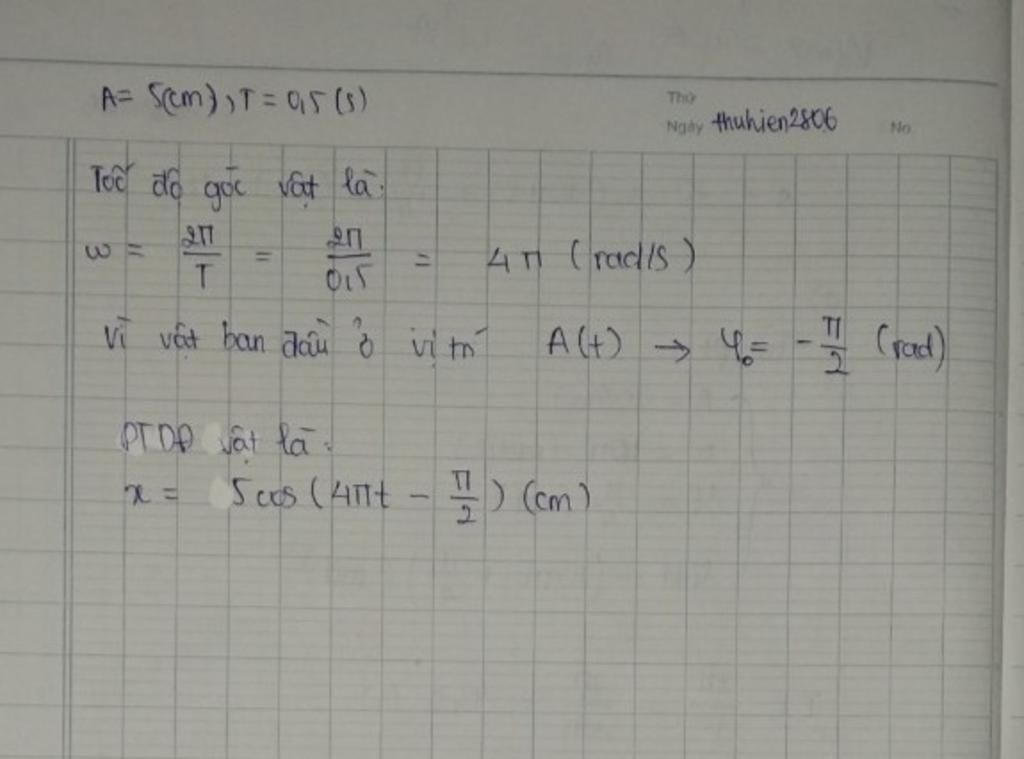 A = 5(cm), T = 0,5 (s)
Thứ
Ngày thuhien2806 No
Tốc độ góc vật là:
ω = 2π/T = 2π/0,5 = 4π (rad/s)
Vì vật ban đầu ở vị trí A(t) → φ₀ = -π/2 (rad)
PTDĐ vật là:
x = 5cos(4πt - π/2) (cm)